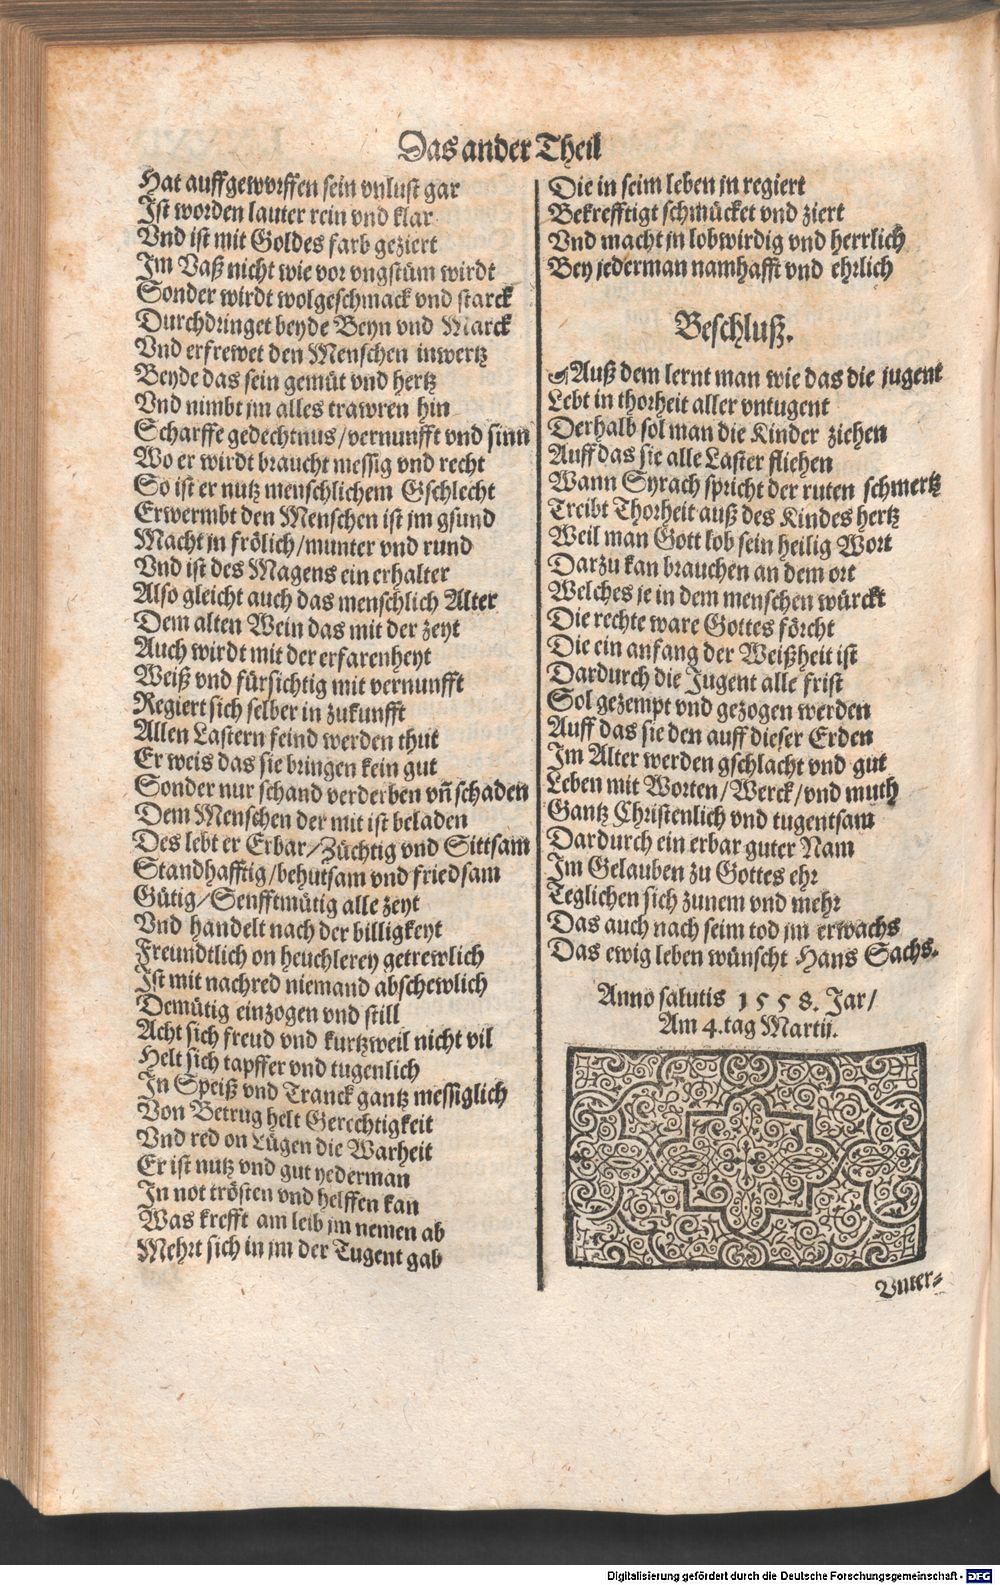 Das ander Theil
Hat auffgeworffen sein vnlust gar
Ist worden lauter rein vnd klar
Vnd ist mit Goldes farb geziert
Im Vaß nicht wie vor vngstüm wirdt
Sonder wirdt wolgeschmack vnd starck
Durchdringet beyde Beyn vnd Marck
Vnd erfrewet den Menschen inwertz
Beyde das sein gemüt vnd hertz
Vnd nimbt jm alles trawren hin
Scharffe gedechtnus/vernunfft vnd sinn
Wo er wirdt braucht messig vnd recht
So ist er nutz menschlichem Gschlecht
Erwermbt den Menschen ist jm gsund
Macht jn frölich/munter vnd rund
Vnd ist des Magens ein erhalter
Also gleicht auch das menschlich Alter
Dem alten Wein das mit der zeyt
Auch wirdt mit der erfarenheyt
Weiß vnd fürsichtig mit vernunfft
Regiert sich selber in zukunfft
Allen Lastern feind werden thut
Er weis das sie bringen kein gut
Sonder nur schand verderben vñ schaden
Dem Menschen der mit ist beladen
Des lebt er Erbar/Züchtig vnd Sittsam
Standhafftig/behutsam vnd friedsam
Gütig/Senfftmütig alle zeyt
Vnd handelt nach der billigkeyt
Freundtlich on heuchlerey getrewlich
Ist mit nachred niemand abschewlich
Demütig einzogen vnd still
Acht sich freud vnd kurtzweil nicht vil
Helt sich tapffer vnd tugenlich
In Speiß vnd Tranck gantz messiglich
Von Betrug helt Gerechtigkeit
Vnd red on Lügen die Warheit
Er ist nutz vnd gut yederman
In not trösten vnd helffen kan
Was krefft am leib jm nemen ab
Mehrt sich in jm der Tugent gab
Die in seim leben jn regiert
Bekrefftigt schmücket vnd ziert
Vnd macht jn lobwirdig vnd herrlich
Bey jederman namhafft vnd ehrlich
Beschluß.
Auß dem lernt man wie das die jugent
Lebt in thorheit aller vntugent
Derhalb sol man die Kinder ziehen
Auff das sie alle Laster fliehen
Wann Syrach spricht der ruten schmertz
Treibt Thorheit auß des Kindes hertz
Weil man Gott lob sein heilig Wort
Darzu kan brauchen an dem ort
Welches je in dem menschen würckt
Die rechte ware Gottes förcht
Die ein anfang der Weißheit ist
Dardurch die Jugent alle frist
Sol gezempt vnd gezogen werden
Auff das sie den auff dieser Erden
Im Alter werden gschlacht vnd gut
Leben mit Worten/Werck/vnd muth
Gantz Christenlich vnd tugentsam
Dardurch ein erbar guter Nam
Im Gelauben zu Gottes ehr
Teglichen sich zunem vnd mehr
Das auch nach seim tod jm erwachs
Das ewig leben wünscht Hans Sachs.
Anno salutis 1558. Jar/
Am 4.tag Martij.
Vnter-
Digitalisierung gefördert durch die Deutsche Forschungsgemeinschaft - DFG